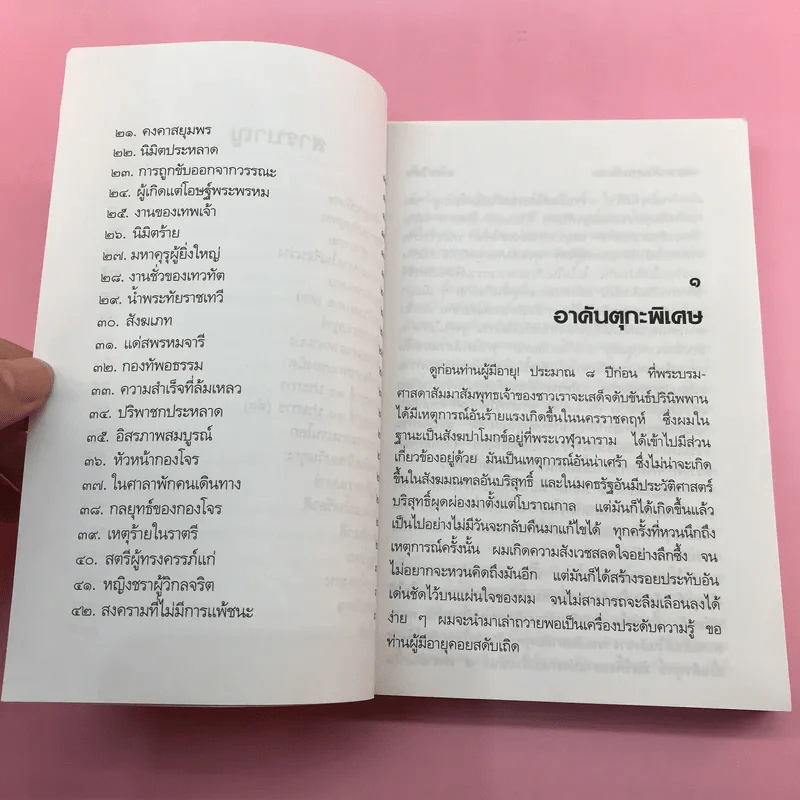 ๒๑. คงคาสยุมพร
๒๒. นิมิตประหลาด
๒๓. การถูกขับออกจากวรรณะ
๒๔. ผู้เกิดแต่โอษฐ์พระพรหม
๒๕. งานของเทพเจ้า
๒๖. นิมิตร้าย
๒๗. มหาคุรุผู้ยิ่งใหญ่
๒๘. งานชั่วของเทวทัต
๒๙. น้ำพระทัยราชเทวี
๓๐. สังฆเภท
๓๑. แด่สพรหมจารี
๓๒. กองทัพอธรรม
๓๓. ความสำเร็จที่ล้มเหลว
๓๔. ปริพาชกประหลาด
๓๕. อิสรภาพสมบูรณ์
๓๖. หัวหน้ากองโจร
๓๗. ในศาลาพักคนเดินทาง
๓๘. กลยุทธ์ของกองโจร
๓๙. เหตุร้ายในราตรี
๔๐. สตรีผู้ทรงครรภ์แก่
๔๑. หญิงชราผู้วิกลจริต
๔๒. สงครามที่ไม่มีการแพ้ชนะ
๑
อาคันตุกะพิเศษ
ดูก่อนท่านผู้มีอายุ! ประมาณ ๘ ปีก่อน ที่พระบรม-
ศาสดาสัมมาสัมพุทธเจ้าของชาวเราจะเสด็จดับขันธ์ปรินิพพาน
ได้มีเหตุการณ์อันร้ายแรงเกิดขึ้นในนครราชคฤห์ ซึ่งผมใน
ฐานะเป็นสังฆปาโมกข์อยู่ที่พระเวฬุวนาราม ได้เข้าไปมีส่วน
เกี่ยวข้องอยู่ด้วย มันเป็นเหตุการณ์อันน่าเศร้า ซึ่งไม่น่าจะเกิด
ขึ้นในสังฆมณฑลอันบริสุทธิ์ และในมคธรัฐอันมีประวัติศาสตร์
บริสุทธิ์ผุดผ่องมาตั้งแต่โบราณกาล แต่มันก็ได้เกิดขึ้นแล้ว
เป็นไปอย่างไม่มีวันจะกลับคืนมาแก้ไขได้ ทุกครั้งที่หวนนึกถึง
เหตุการณ์ครั้งนั้น ผมเกิดความสังเวชสลดใจอย่างลึกซึ้ง จน
ไม่อยากจะหวนคิดถึงมันอีก แต่มันก็ได้สร้างรอยประทับอัน
เด่นชัดไว้บนแผ่นใจของผม จนไม่สามารถจะลืมเลือนลงได้
ง่าย ๆ ผมจะนำมาเล่าถวายพอเป็นเครื่องประดับความรู้ ขอ
ท่านผู้มีอายุคอยสดับเถิด